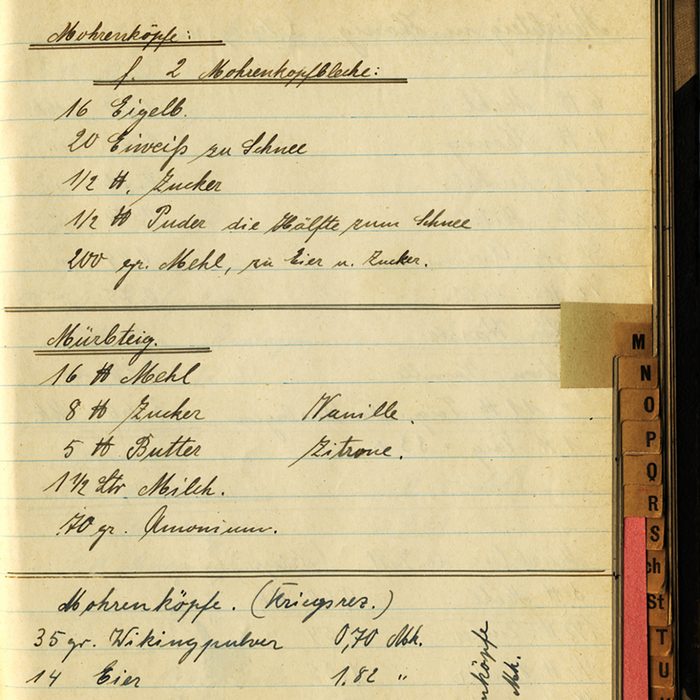 Mohrenköpfe:
f. 2 Mohrenkopfbleche:
16 Eigelb.
20 Eiweiß zu Schnee
1/2 ℔. Zucker
1/2 ℔ Puder die Hälfte zum Schnee
200 gr. Mehl, zu Eier u. Zucker.
Mürbteig.
16 ℔ Mehl
8 ℔ Zucker Vanille.
5 ℔ Butter Zitrone.
1 1/2 Ltr Milch.
70 gr. Amonium.
Mohrenköpfe. (Kriegsrez.)
35 gr. Wikingpulver 0,70 Mk.
14 Eier 1.82 "
Mk.
M
N
O
P
Q
R
S
Sch
St
T
U